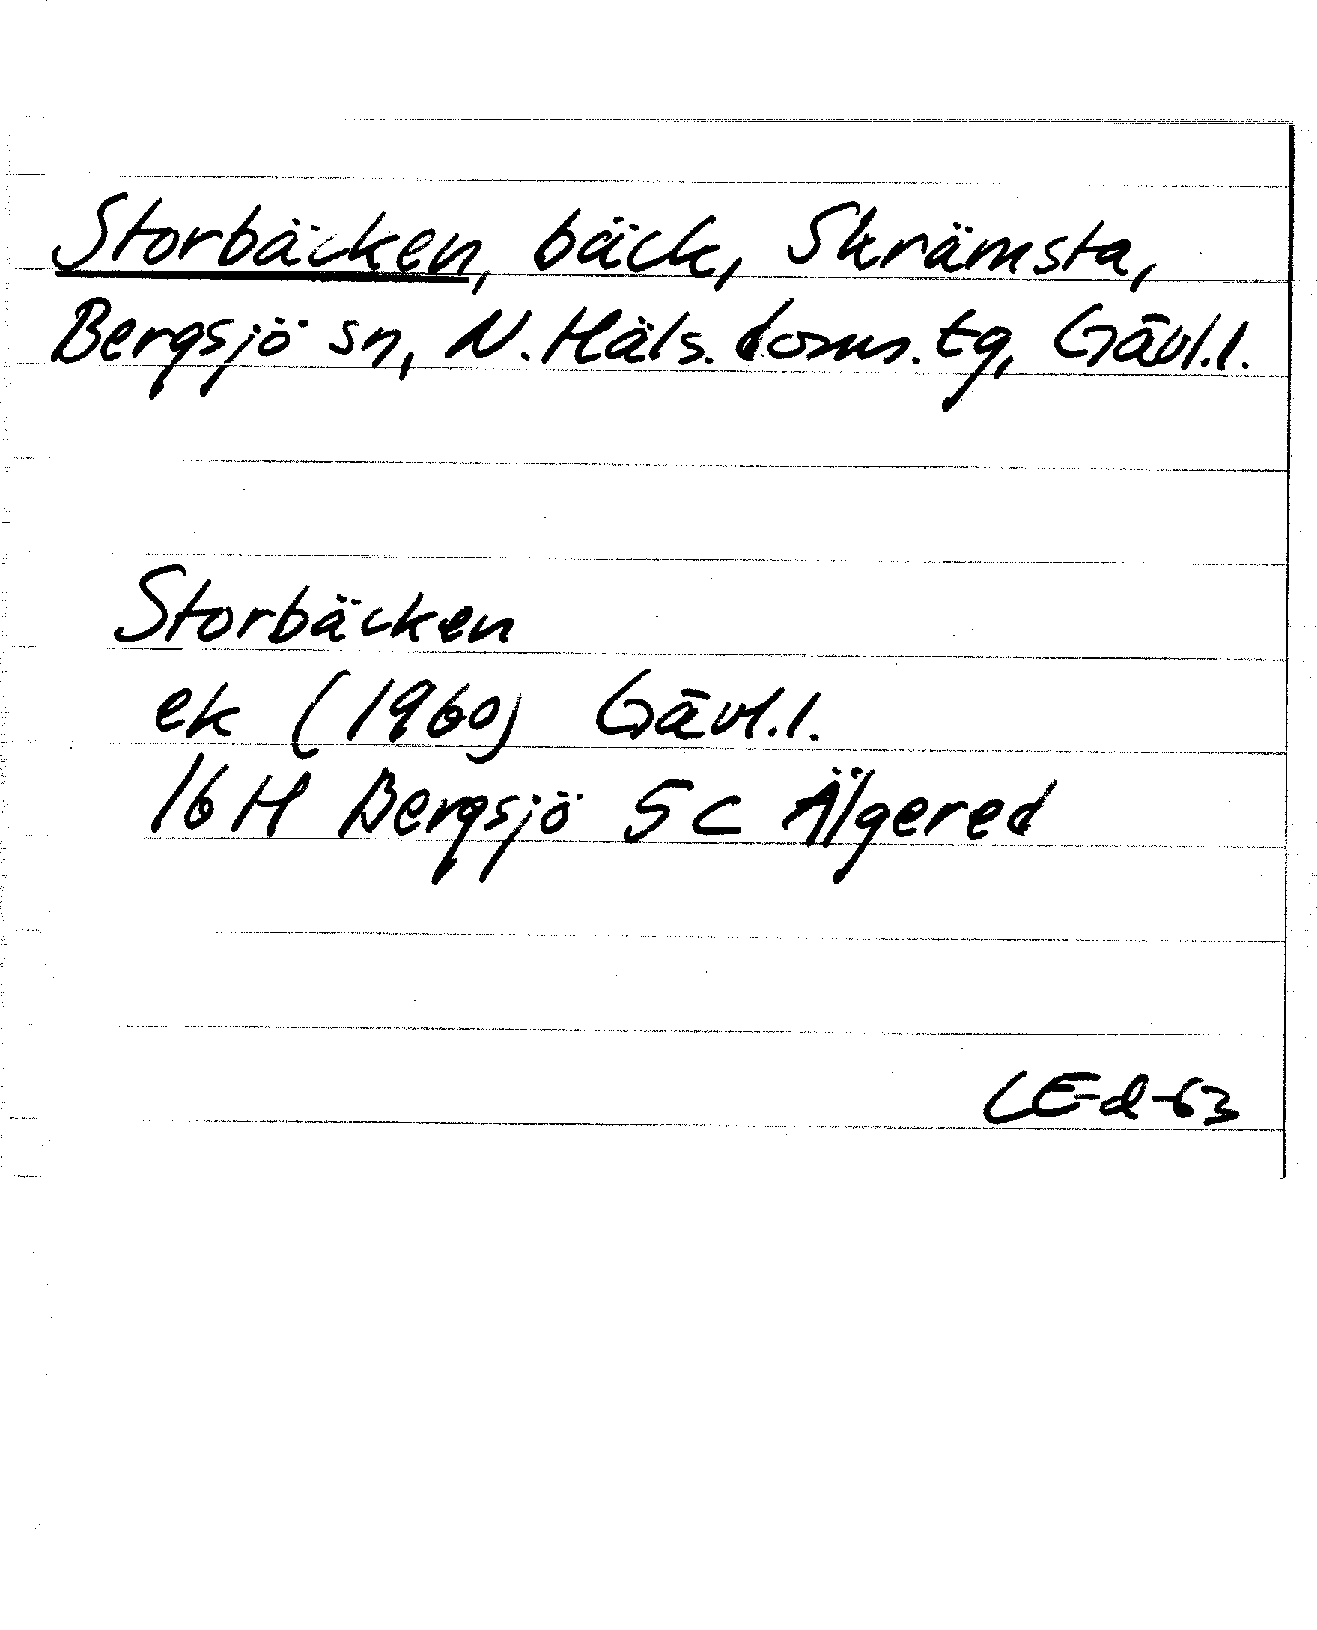 Storbäcken, bäck, Skrämsta,
Bergsjö sn, N. Häls. doms. tg, Gävl. l.
Storbäcken
ek (1960) Gävl. l.
16 H Bergsjö 5 c Älgered
CE-d-63